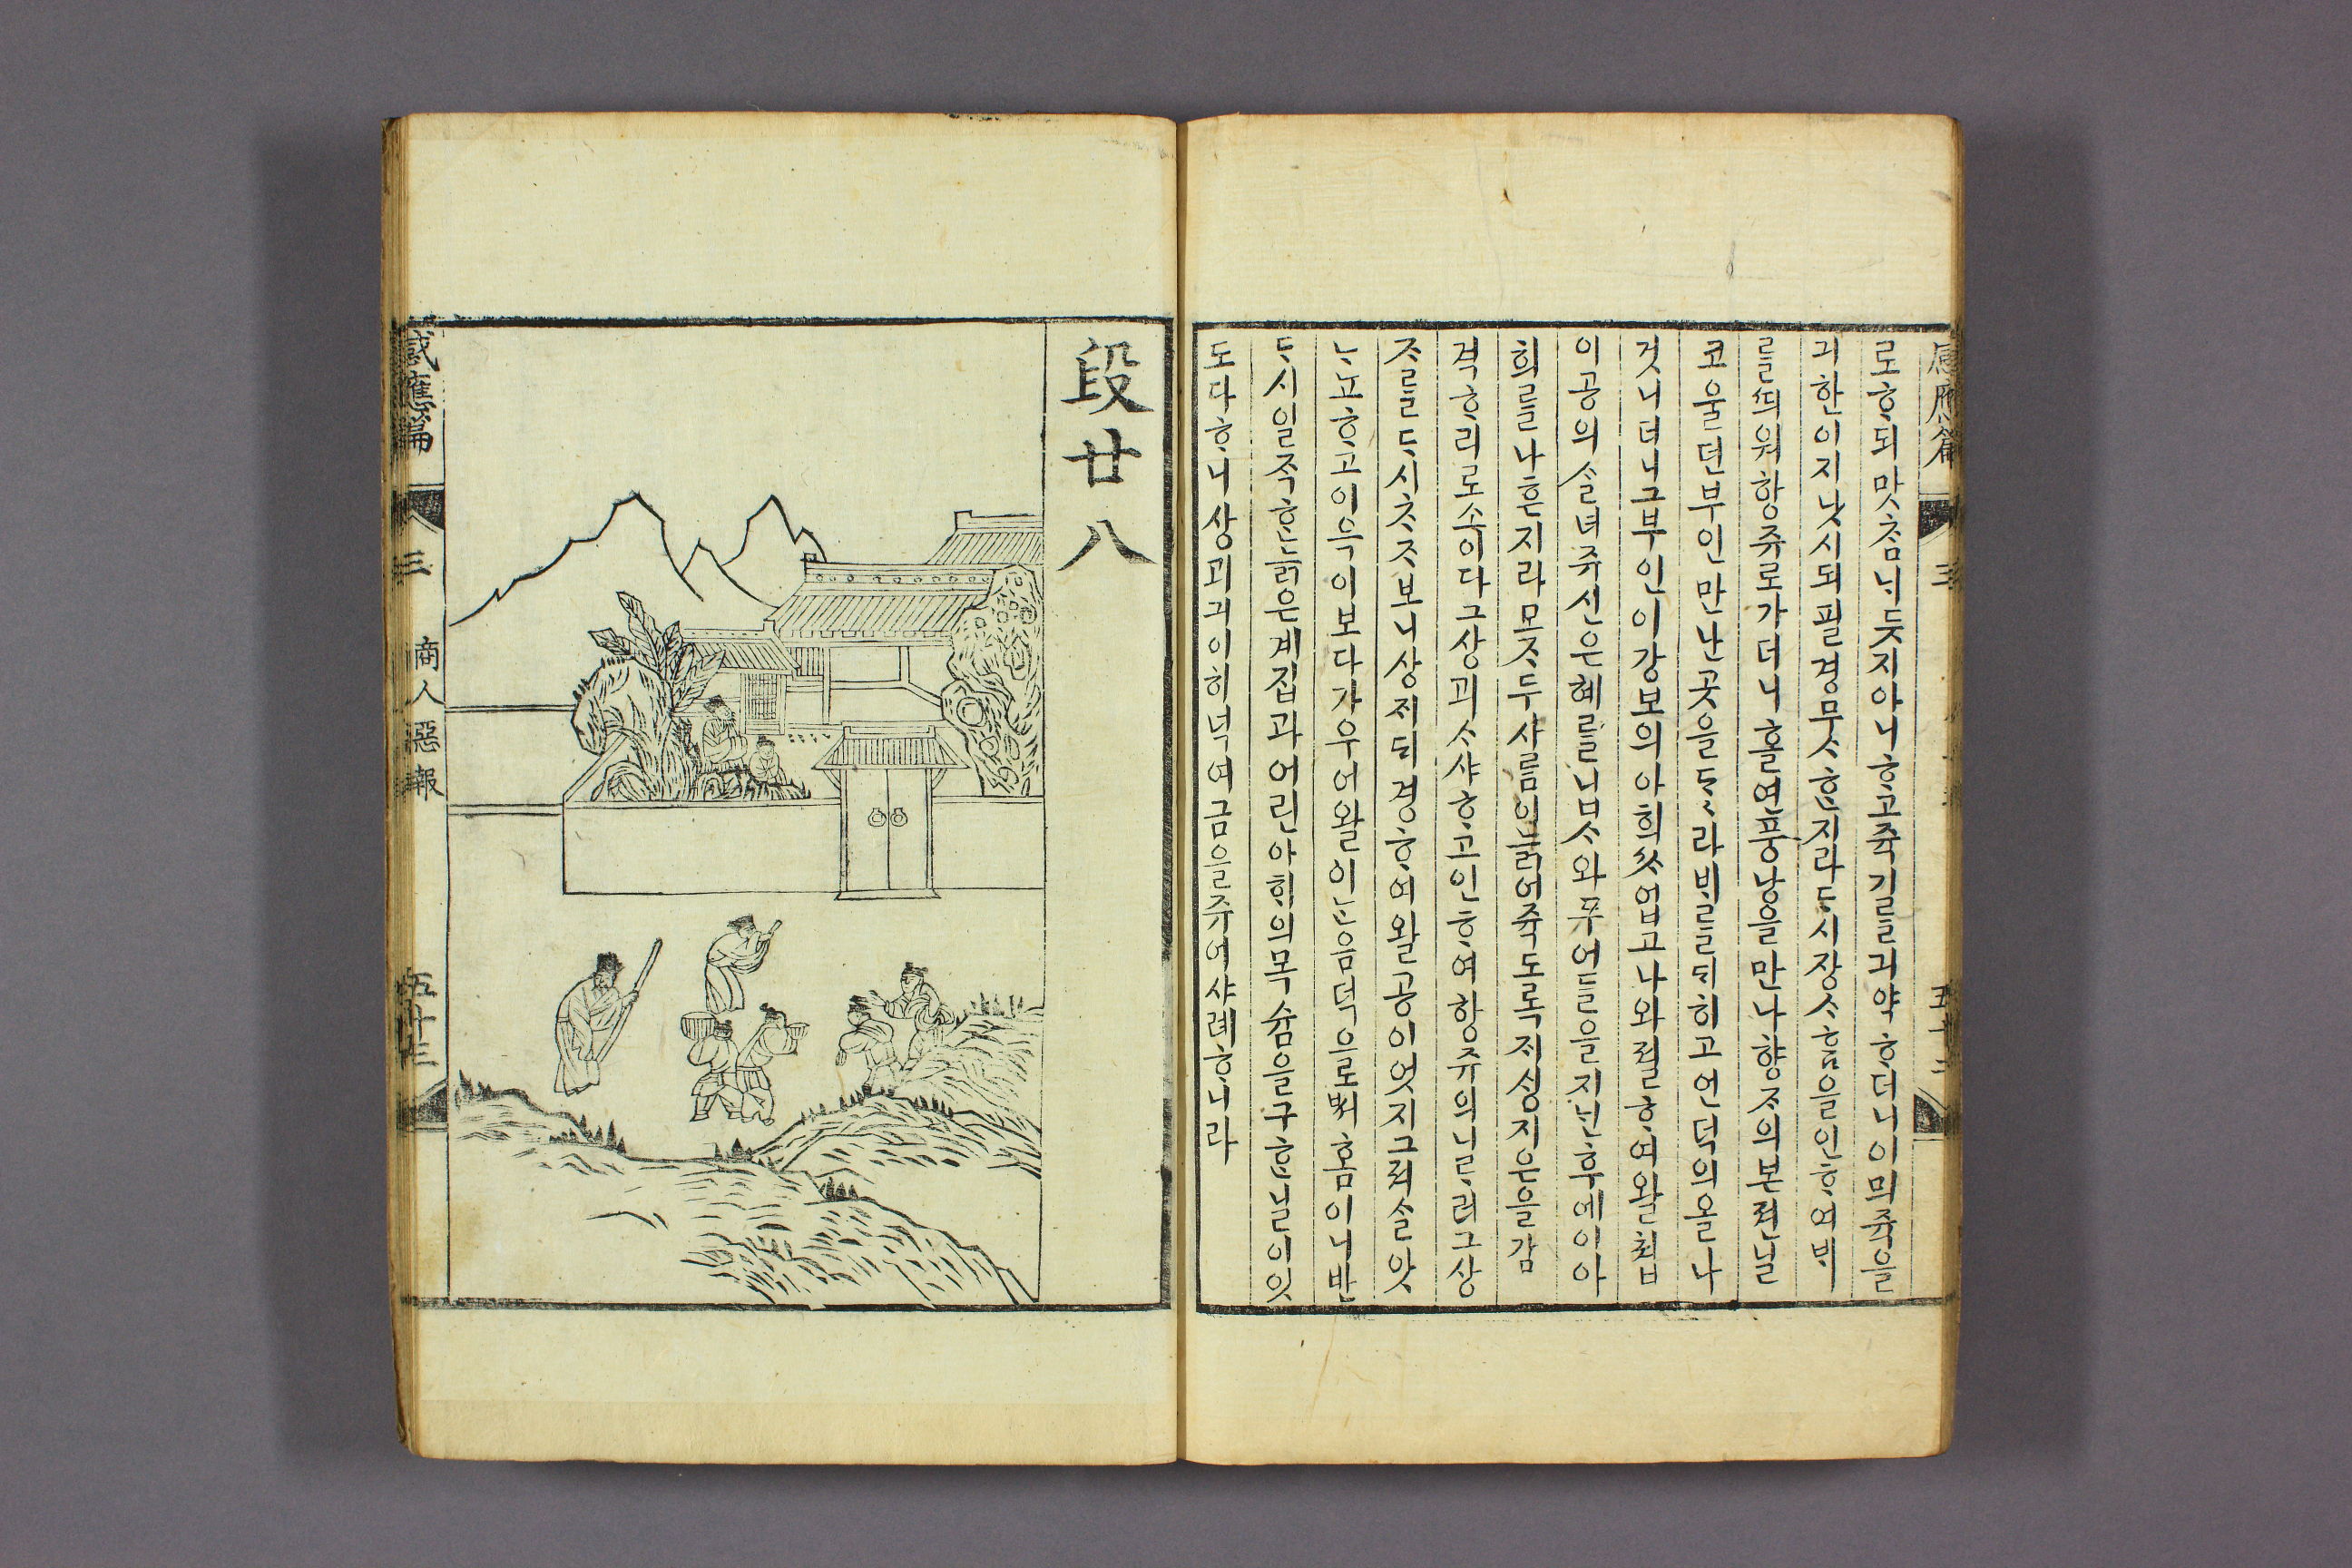 로ᄒᆞ되맛ᄎᆞᆷᄂᆡ듯지아니ᄒᆞ고쥭기를긔약ᄒᆞ더니이믜쥭을
긔한이지낫시되필경무ᄉᆞᄒᆞᆫ지라ᄃᆞ시장ᄉᆞᄒᆞᆷ을인ᄒᆞ여ᄇᆡ
를ᄯᅴ워항쥬로가더니홀연풍낭을만나향ᄌᆞ의본젼님
코울던부인만난곳을ᄃᆞᄃᆞ라ᄇᆡ를ᄃᆡ히고언덕의올나
것니더니그부인이강보의아희ᄶᆞ업고나와졀ᄒᆞ여왈쳡
이공의술녀쥬신은혜를닙ᄉᆞ와푸어들을지난후에이아
희를나흔지라모ᄌᆞ두사름이늙어쥭도록져싱지은을감
격ᄒᆞ리로소이다그상괴ᄉᆞ샤ᄒᆞ고인ᄒᆞ여항쥬의니르러그상
ᄌᆞ를ᄃᆞ시ᄎᆞᄌᆞ보니상ᄌᆡ되경ᄒᆞ여왈공이엇지그져술앗
ᄂᆞ뇨ᄒᆞ고이윽이보다가우어왈이ᄂᆞᆫ음덕으로ᄡᅧ홈이니반
ᄃᆞ시일즉ᄒᆞᆫ늙은계집과어린아ᄒᆡ의목숨을구ᄒᆞᆫ닐이잇
도다ᄒᆞ니상괴긔이히넉여금을쥬어샤례ᄒᆞ니라
段廿八
感應篇 三 商人惡報 五十三